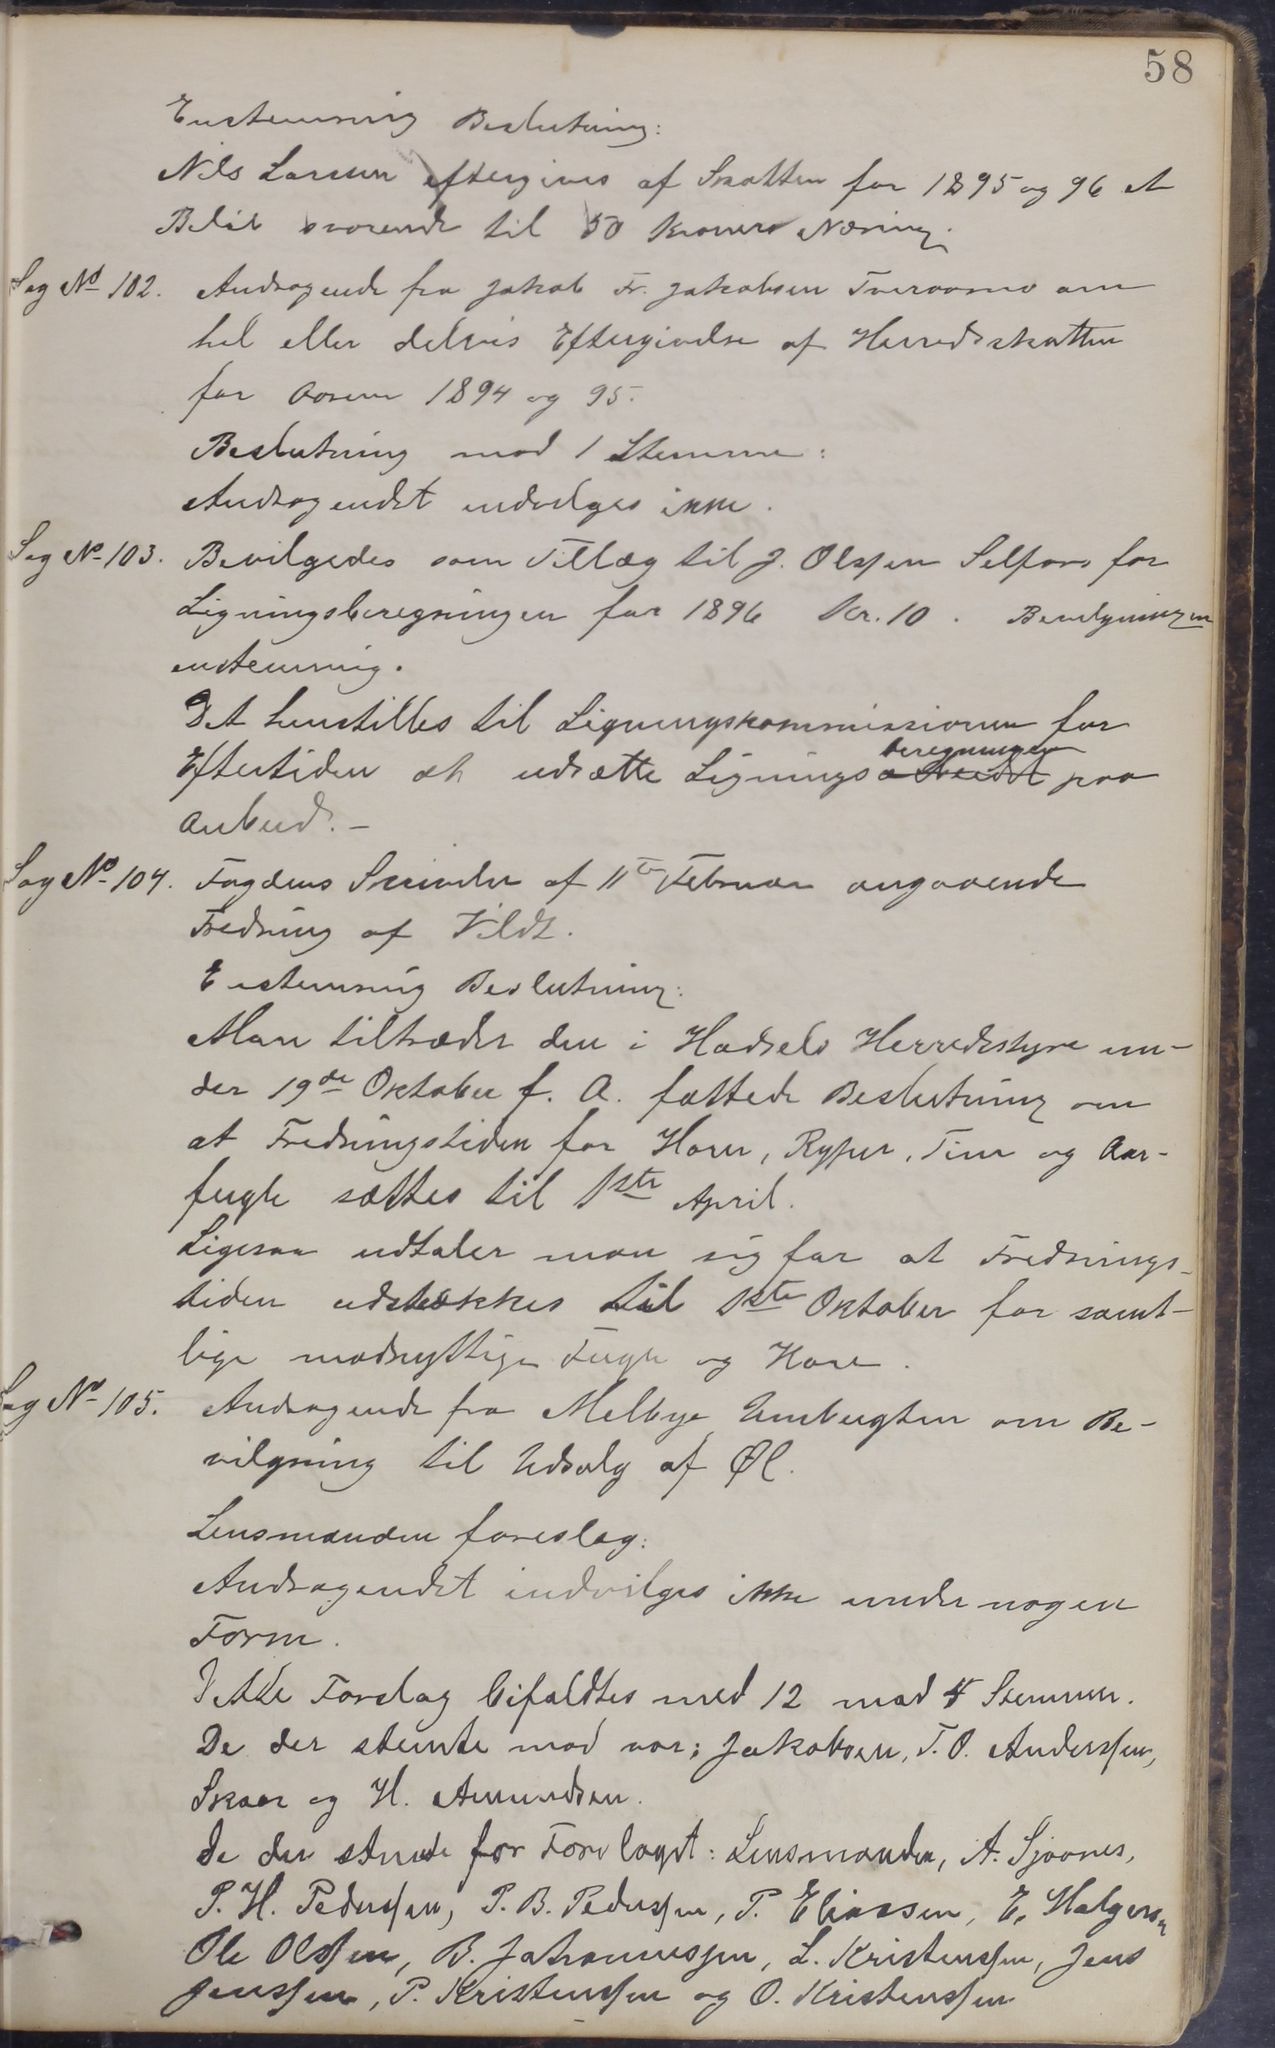 58
Enstemmig Beslutning:
Nils Larssen eftergives af Skatten for 1895 og 96 et
Beløb svarende til 50 Kroners Næring.
Sag No 102. Andragende fra Jakob Fr. Jakobsen Tveraanes om
hel eller delvis Eftergivelse af Herredsskatten
for Aarene 1894 og 95.
Beslutning mod 1 Stemme:
Andragendet indvilges ikke.
Sag No 103. Bevilgedes som Tillæg til J. Olssen Selfors for
Ligningsberegningen for 1896 Kr. 10. Bevilgningen
enstemmig.
Det henstilles til Ligningskommissionen for
beregningen
Eftertiden at udsætte Ligningsarbeidet paa
Anbud. -
Sag No 104. Fogdens Skrivelse af 11te Februar angaaende
Fredning af Vildt.
Enstemmig Beslutning:
Man tiltræder den i Hadsels Herredsstyre un-
der 19de Oktober f. A. fattede Beslutning om
at Fredningstiden for Harer, Ryper, Tiur og Aar-
fugle sættes til 1ste April.
Ligesaa udtaler man sig for at Frednings-
tiden udstrækkes til 1ste Oktober for samt-
lige madnyttige Fugle og Hare.
Sag No 105. Andragende fra Melbye Umbugten om Be-
vilgning til Udsalg af Øl.
Lensmanden foreslog:
Andragendet indvilges ikke under nogen
Form.
Dette Forslag bifaldtes med 12 mod 4 Stemmer.
De der stemte mod var: Jakobsen, T. O. Anderssen,
Skaar og H. Amundsen.
De der stemte for Forslaget: Lensmanden, A. Sjaanes,
P. H. Pederssen, P. B. Pederssen, P. Eliassen, E. Halgersen
Ole Olssen, B. Johannessen, L. Kristenssen, Jens
Jenssen, P. Kristenssen og O. Kristenssen